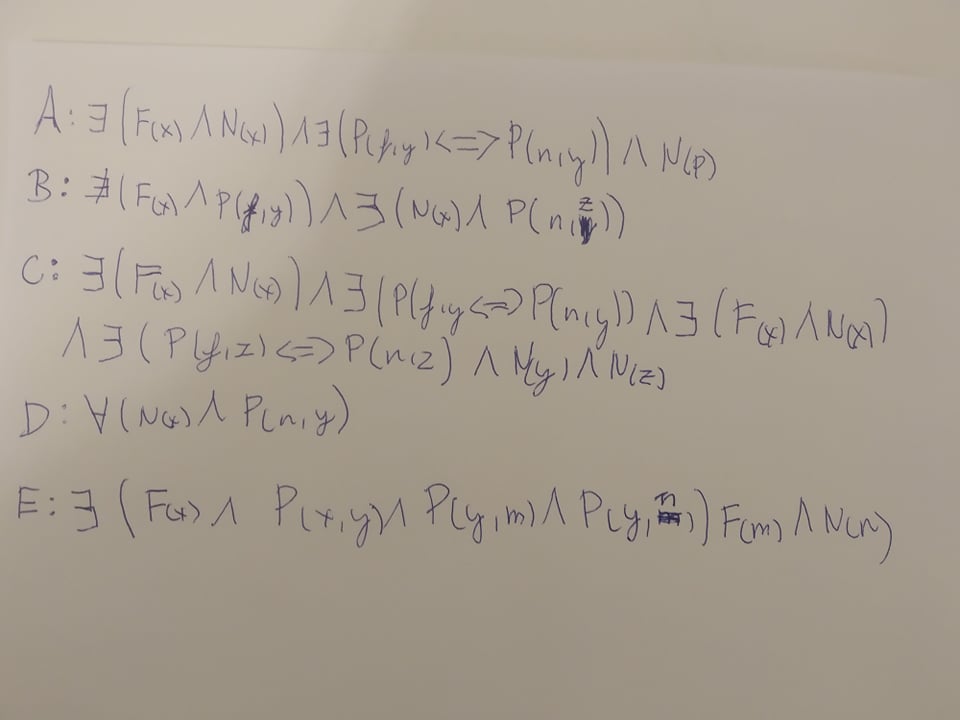 A: ∃ (F(x) ∧ N(x)) ∧ ∃ (P(f,y) <=> P(n,y)) ∧ N(p)
B: ∄ (F(x) ∧ P(f,y)) ∧ ∃ (N(x) ∧ P(n,z))
C: ∃ (F(x) ∧ N(x)) ∧ ∃ (P(f,y <=> P(n,y)) ∧ ∃ (F(x) ∧ N(x))
∧ ∃ (P(f,z) <=> P(n,z) ∧ N(y) ∧ N(z)
D: ∀ (N(x) ∧ P(n,y)
E: ∃ (F(x) ∧ P(x,y) ∧ P(y,m) ∧ P(y,n)) F(m) ∧ N(n)